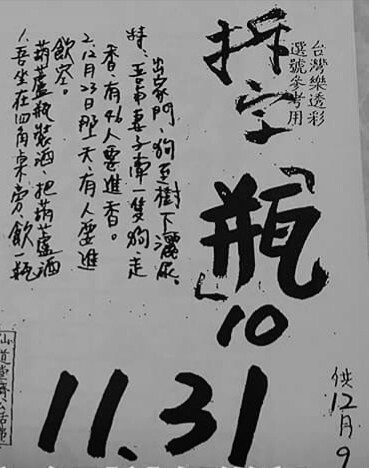 台灣樂透彩
選號參考用
拆字
「瓶」
10
11.31
供12月9
1.吾坐在四角桌賣飲一瓶
葫蘆瓶裝酒、把葫蘆酒
飲容。
2.12月23日那一天、有人要進
香、有46人要進香。
特、吾弟妻子牽一隻狗、走
出家門、狗在樹下灑尿。